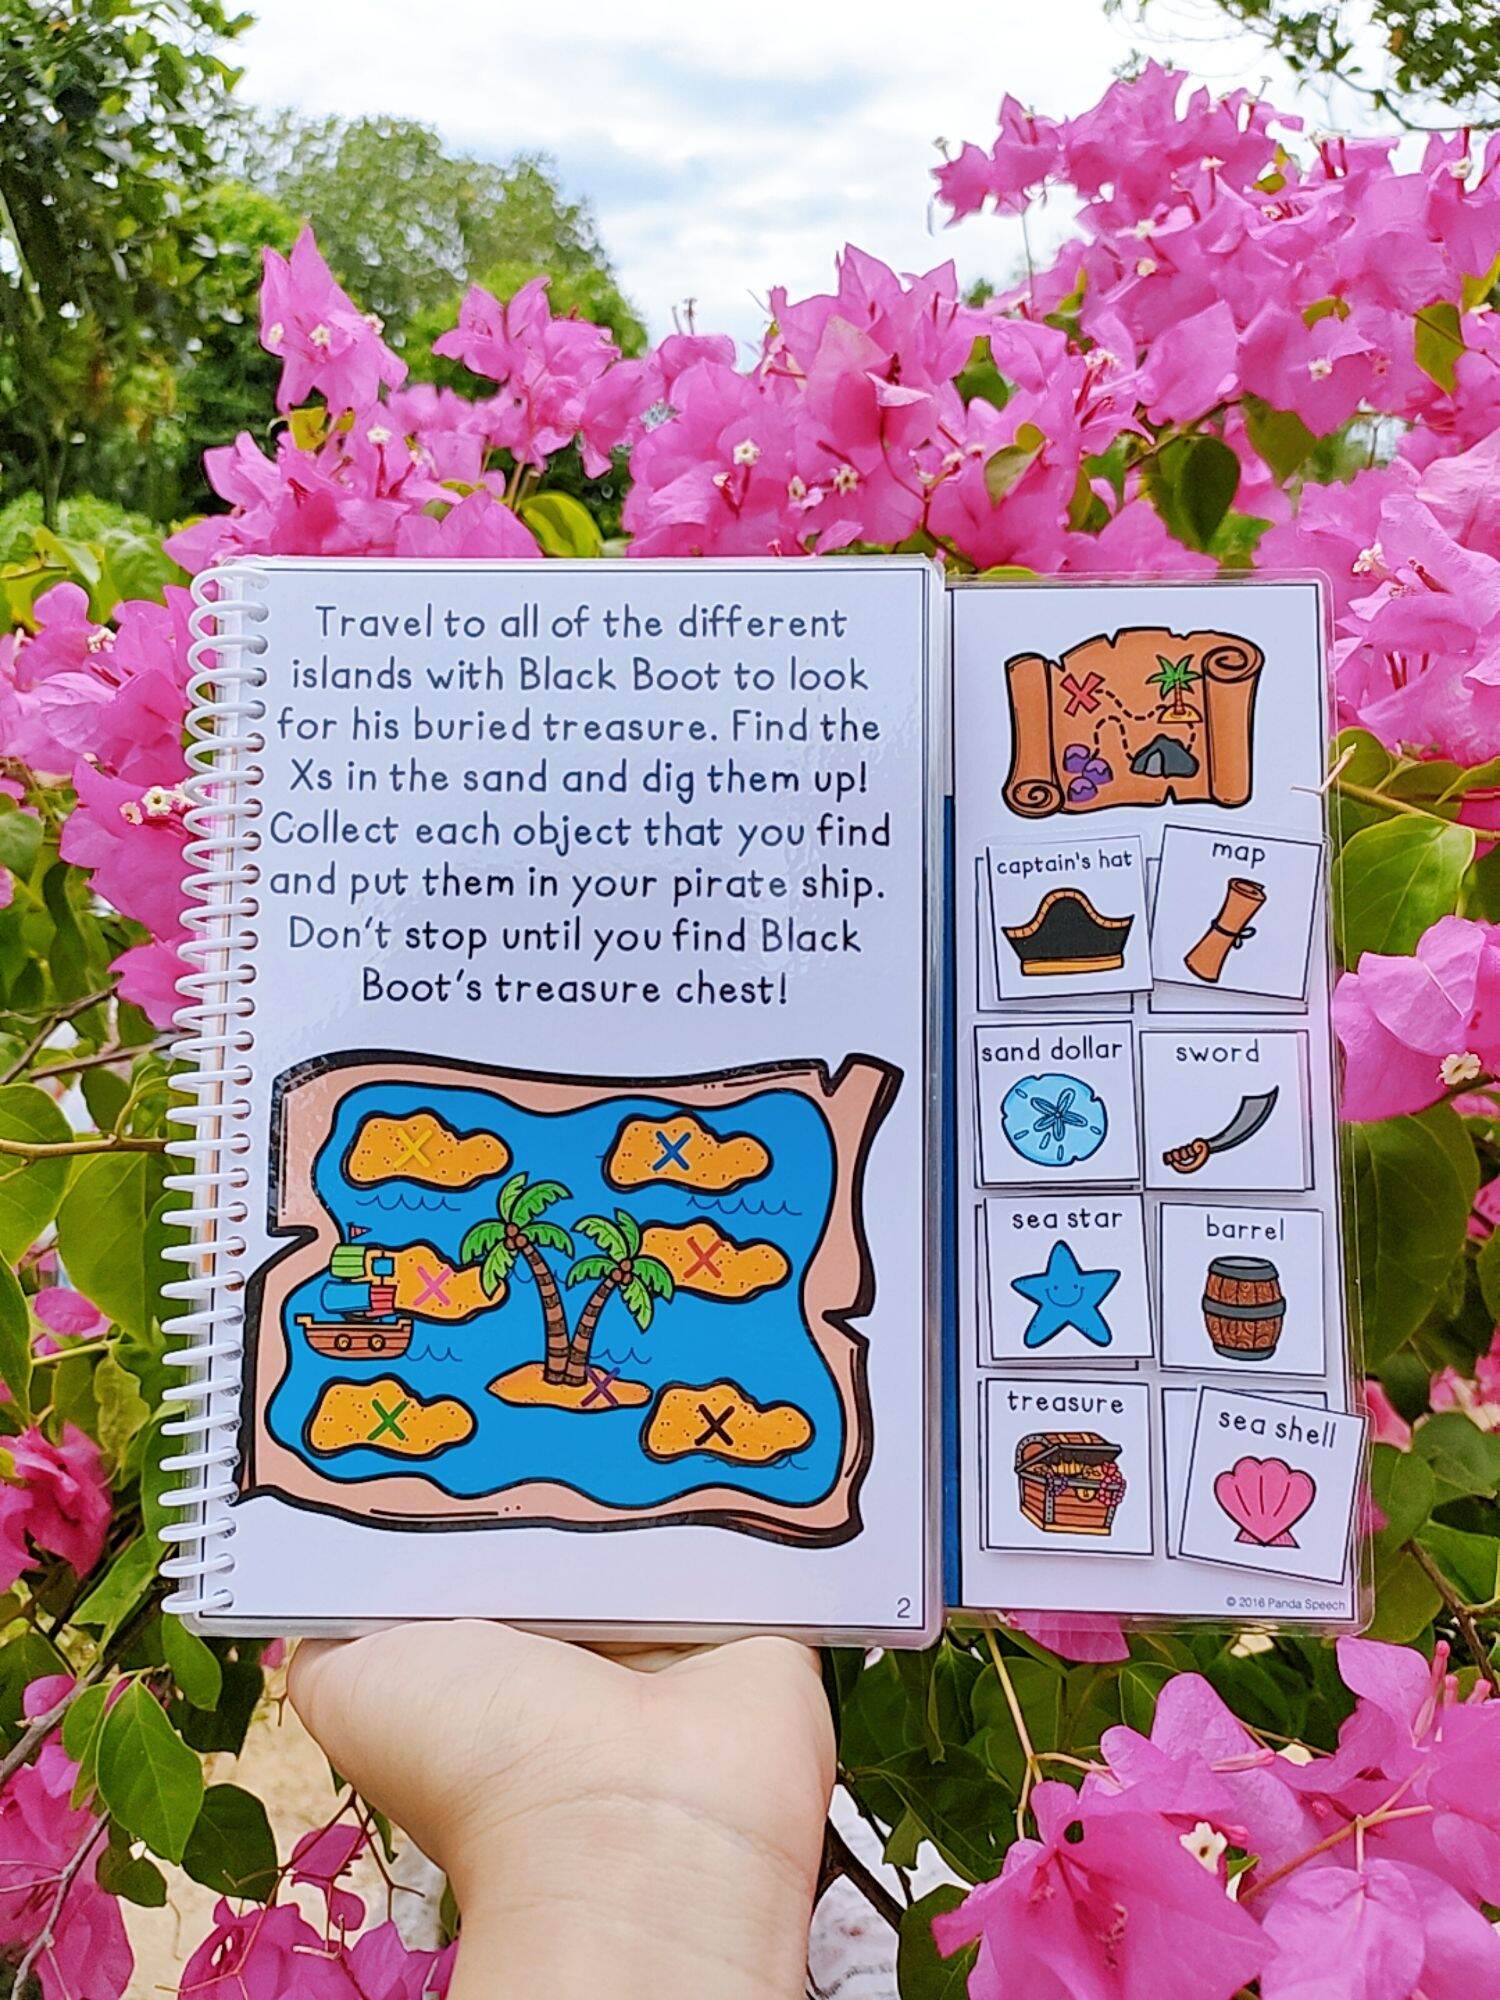 Travel to all of the different
islands with Black Boot to look
for his buried treasure. Find the
Xs in the sand and dig them up!
Collect each object that you find
and put them in your pirate ship.
Don't stop until you find Black
Boot's treasure chest!
2
captain's hat
map
sand dollar
sword
sea star
barrel
treasure
sea shell
© 2016 Panda Speech